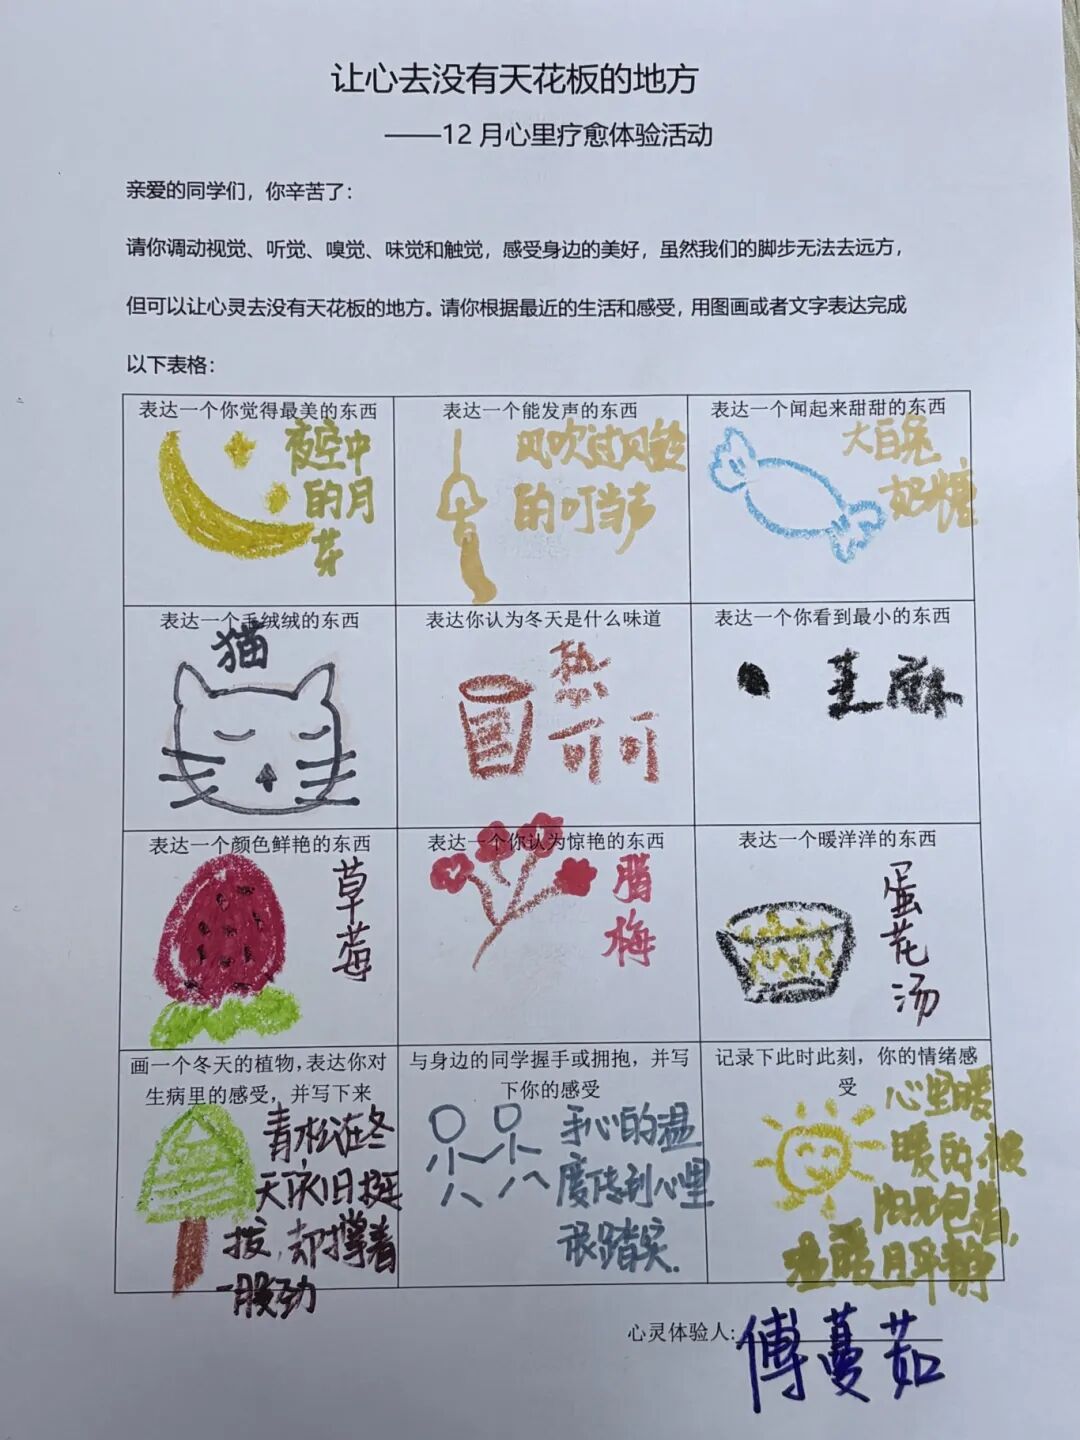 让心去没有天花板的地方
——12月心里疗愈体验活动
亲爱的同学们，你辛苦了：
请你调动视觉、听觉、嗅觉、味觉和触觉，感受身边的美好，虽然我们的脚步无法去远方，
但可以让心灵去没有天花板的地方。请你根据最近的生活和感受，用图画或者文字表达完成
以下表格：
表达一个你觉得最美的东西
夜空中
的月
芽
表达一个能发声的东西
风吹过风铃
的叮当声
表达一个闻起来甜甜的东西
大白兔
奶糖
表达一个毛绒绒的东西
猫
表达你认为冬天是什么味道
热
可可
表达一个你看到最小的东西
芝麻
表达一个颜色鲜艳的东西
草
莓
表达一个你认为惊艳的东西
腊
梅
表达一个暖洋洋的东西
蛋
花
汤
画一个冬天的植物，表达你对
生病里的感受，并写下来
青松在冬
天依旧挺
拔，却撑着
一股劲
与身边的同学握手或拥抱，并写
下你的感受
手心的温
度传到心里
很踏实.
记录下此时此刻，你的情绪感
受
心里暖
暖的.被
阳光包着,
温暖且平静
心灵体验人:
傅蔓茹